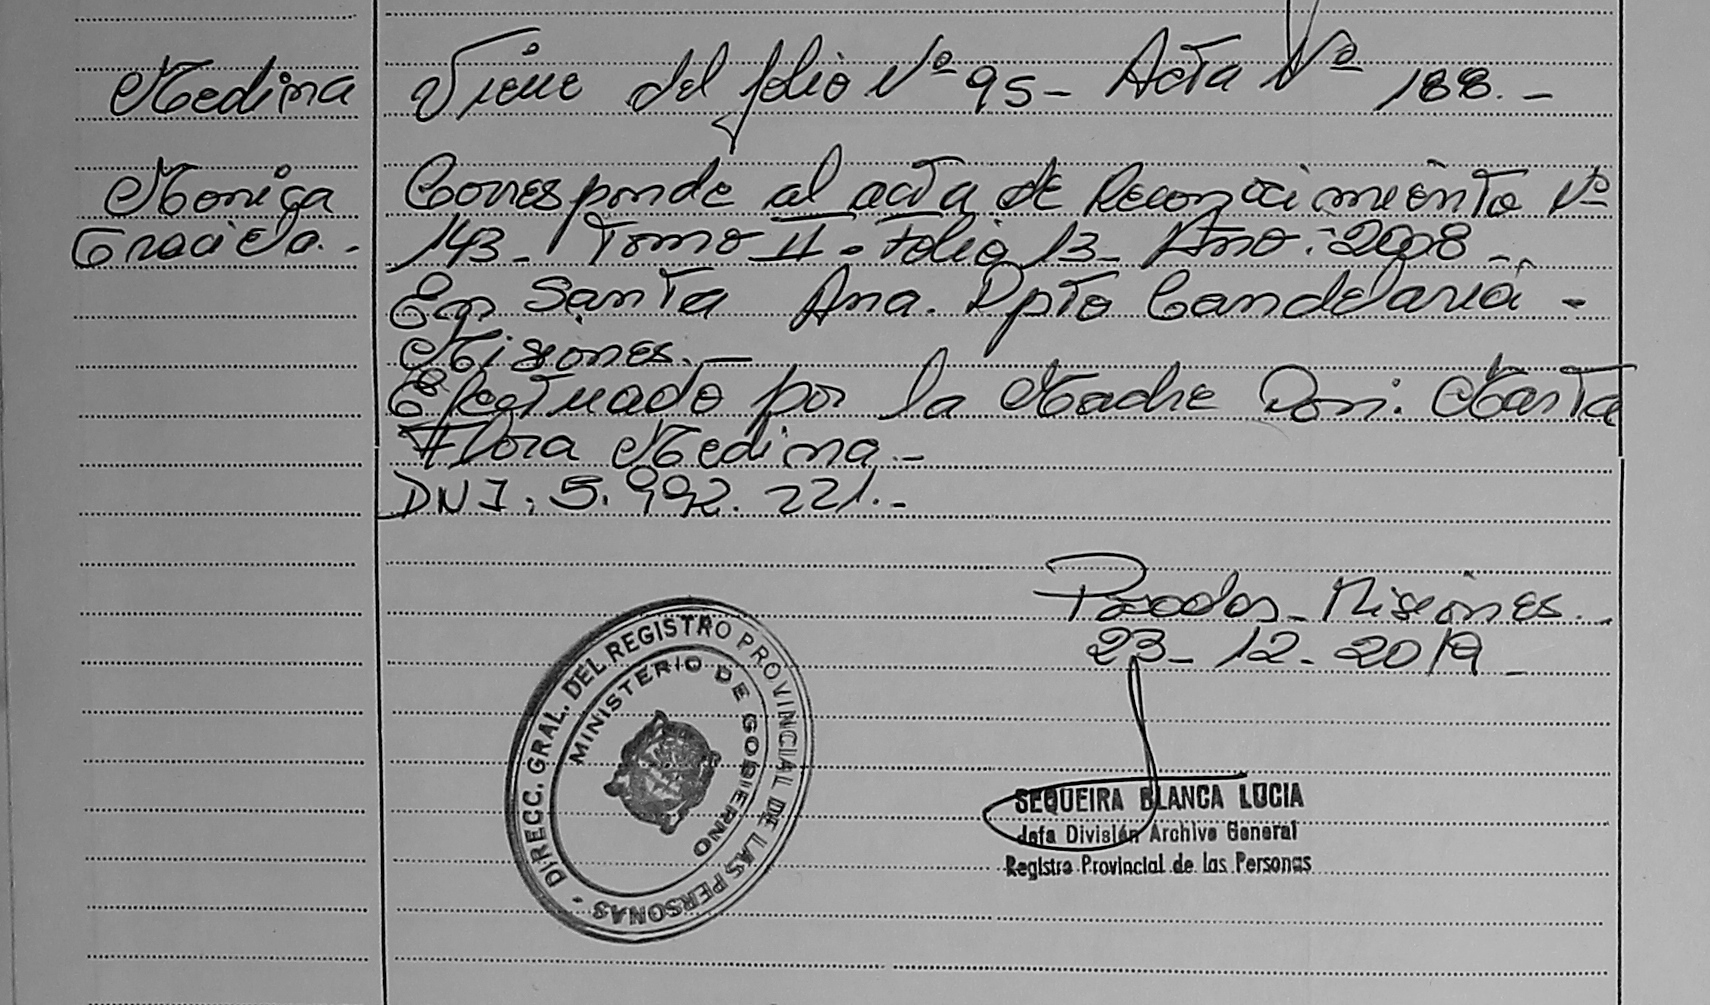 Medina
Viene del folio Nº 95 - Acta Nº 188. -
Monica
Graciela. -
Corresponde al acta de Reconocimiento Nº
143 - Tomo II - Folio 13 - Año: 2008 -
En Santa Ana. Dpto Candelaria -
Misiones. -
Efectuado por la Madre Dom: Marta
Flora Medina. -
DNI: 5.992.221. -
Posadas - Misiones. -
23 - 12 - 2019 -
DIRECC. GRAL. DEL REGISTRO PROVINCIAL DE LAS PERSONAS -
MINISTERIO DE GOBIERNO
SEQUEIRA BLANCA LUCIA
Jefa División Archivo General
Registro Provincial de las Personas